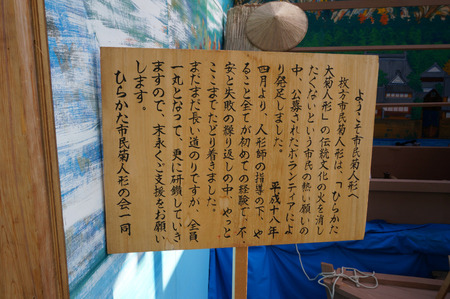 ようこそ市民菊人形へ
枚方市民菊人形は、「ひらかた
大菊人形」の伝統文化の火を消し
たくないという市民の熱い願いの
中、公募されたボランティアによ
り発足しました。 平成十八年
四月より、人形師の指導の下、や
ること全てが初めての経験で、不
安と失敗の繰り返しの中、やっと
ここまでたどり着きました。
まだまだ長い道のりですが、全員
一丸となって、更に研鑽していき
ますので、末永くご支援をお願い
します。
ひらかた市民菊人形の会一同